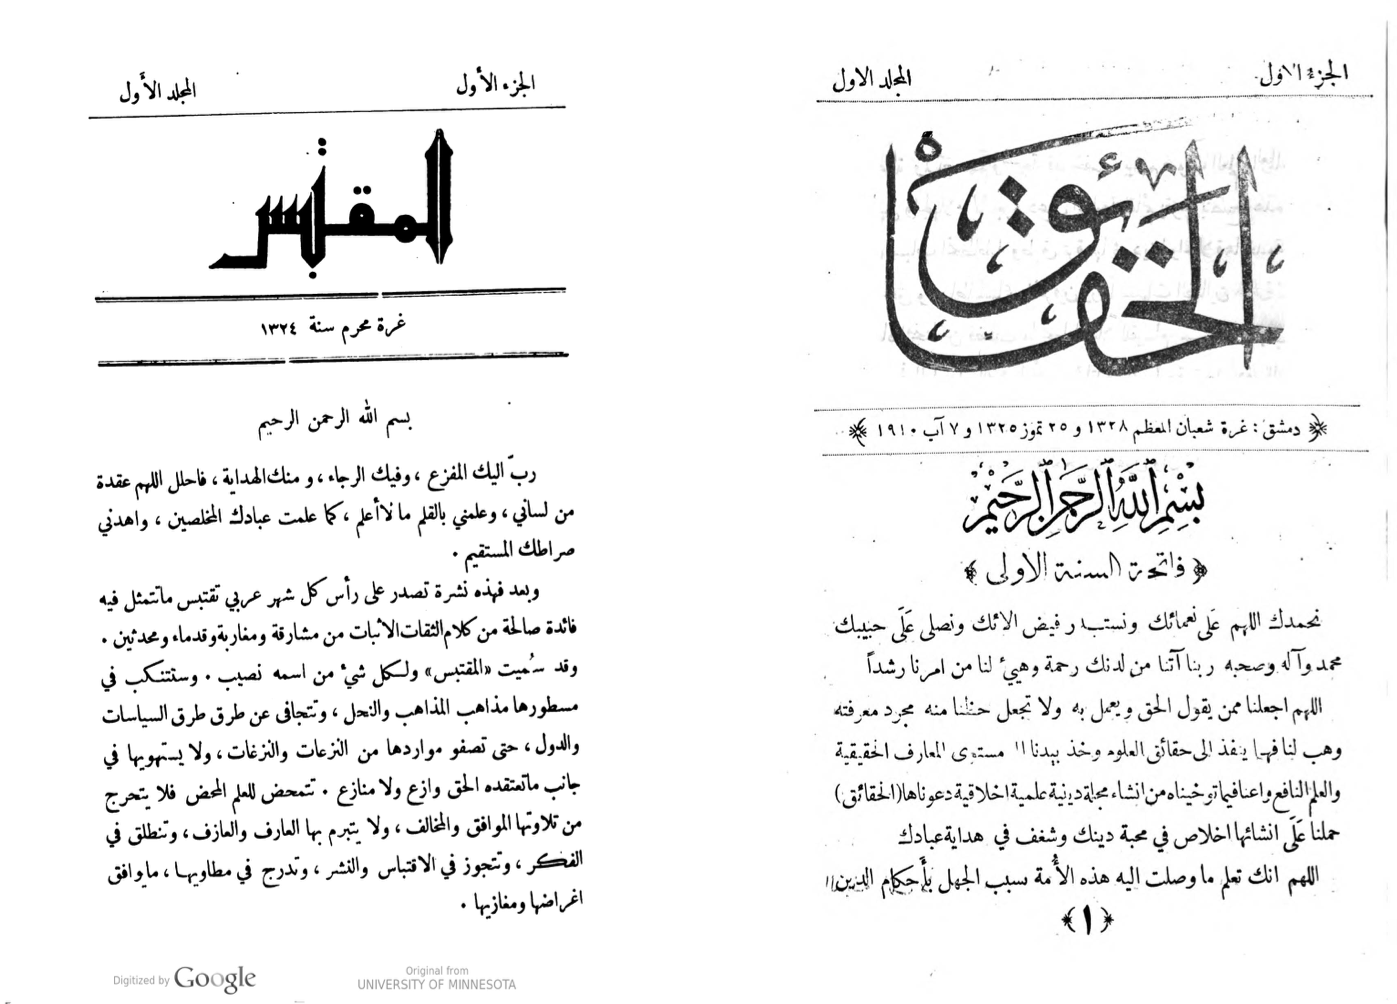 الجزء الاول
المجلد الاول
الحقائق
دمشق : غرة شعبان المعظم ١٣٢٨ و ٢٥ تموز ١٣٢٥ و ٧ آب ١٩١٠
بِسْمِ اللَّهِ الرَّحْمَنِ الرَّحِيْمِ
فاتحة السنة الاولى
نحمدك اللهم عَلَى نعمائك ونستـ ر فيض الائك ونصلي عَلَى حبيبك
محمد وآله وصحبه ربنا آتنا من لدنك رحمة وهيئ لنا من امرنا رشداً
اللهم اجعلنا ممن يقول الحق ويعمل به ولا تجعل حظنا منه مجرد معرفته
وهب لنا فهما ينفذ الى حقائق العلوم وخذ بيدنا الـ مستوى المعارف الحقيقية
والعلم النافع واعنا فيما توخيناه من انشاء مجلة دينية علمية اخلاقية دعوناها (الحقائق)
حملنا عَلَى انشائها اخلاص في محبة دينك وشغف في هداية عبادك
اللهم انك تعلم ما وصلت اليه هذه الأُمة سبب الجهل بأَحكام الدين
١
الجزء الأول
المجلد الأول
المقتبس
غرة محرم سنة ١٣٢٤
بسم الله الرحمن الرحيم
ربّ اليك المفزع ، وفيك الرجاء ، ومنك الهداية ، فاحلل اللهم عقدة
من لساني ، وعلمني بالقلم ما لا أعلم ، كما علمت عبادك المخلصين ، واهدني
صراطك المستقيم .
وبعد فهذه نشرة تصدر على رأس كل شهر عربي تقتبس ماتتمثل فيه
فائدة صالحة من كلام الثقات الاثبات من مشارقة ومغاربة وقدماء ومحدثين .
وقد سُميت «المقتبس» ولكل شيْ من اسمه نصيب . وستتنكب في
مسطورها مذاهب المذاهب والنحل ، وتتجافى عن طرق طرق السياسات
والدول ، حتى تصفو مواردها من النزعات والنزغات ، ولا يستهويها في
جانب ماتعتقده الحق وازع ولا منازع . تتمحض للعلم المحض فلا يتحرج
من تلاوتها الموافق والمخالف ، ولا يتبرم بها العارف والعازف ، وتنطلق في
الفكر ، وتتجوز في الاقتباس والنشر ، وتدرج في مطاويها ، مايوافق
اغراضها ومغازيها .
Digitized by Google
Original from
UNIVERSITY OF MINNESOTA